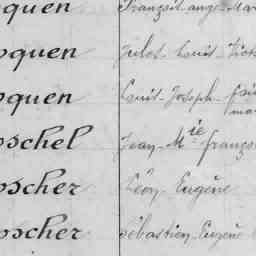 oquen François-ange-Mar
oquen Jules-Louis-Vict
oquen Louis-Joseph-
oschel Jean-Mie franço
oscher Léon-Eugène
oscher Sébastien-Eugène